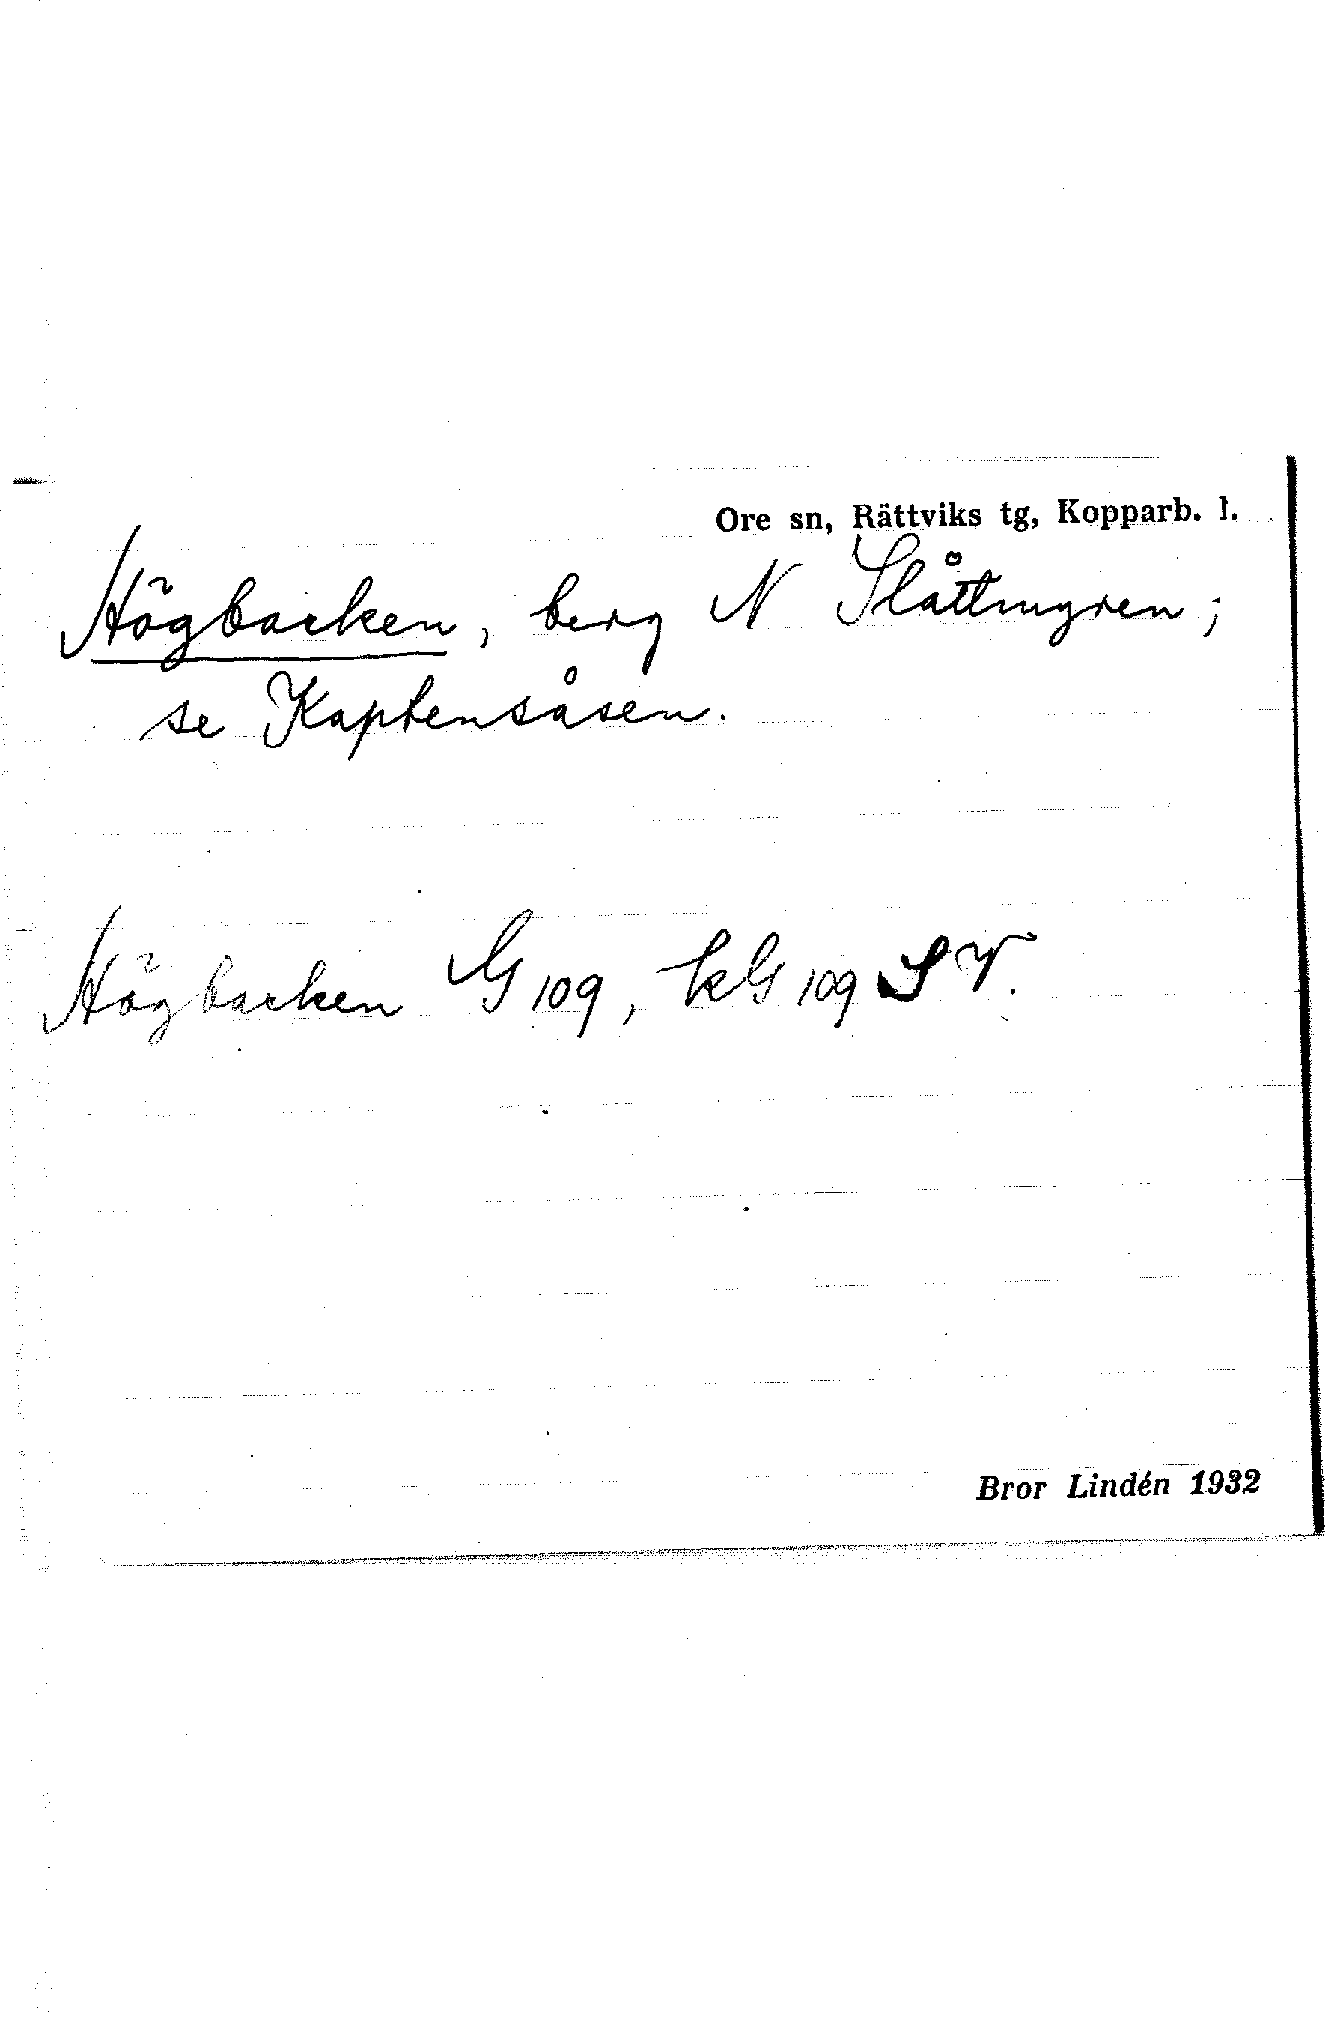 Ore sn, Rättviks tg, Kopparb. l.
Högbacken, berg N Slåttmyren;
se Kaptensåsen.
Högbacken G 109, kG 109 SV.
Bror Lindén 1932